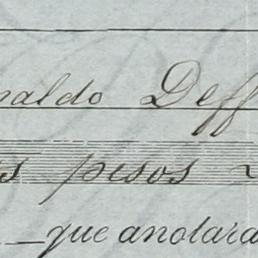 naldo Deff
s pesos
que anotara